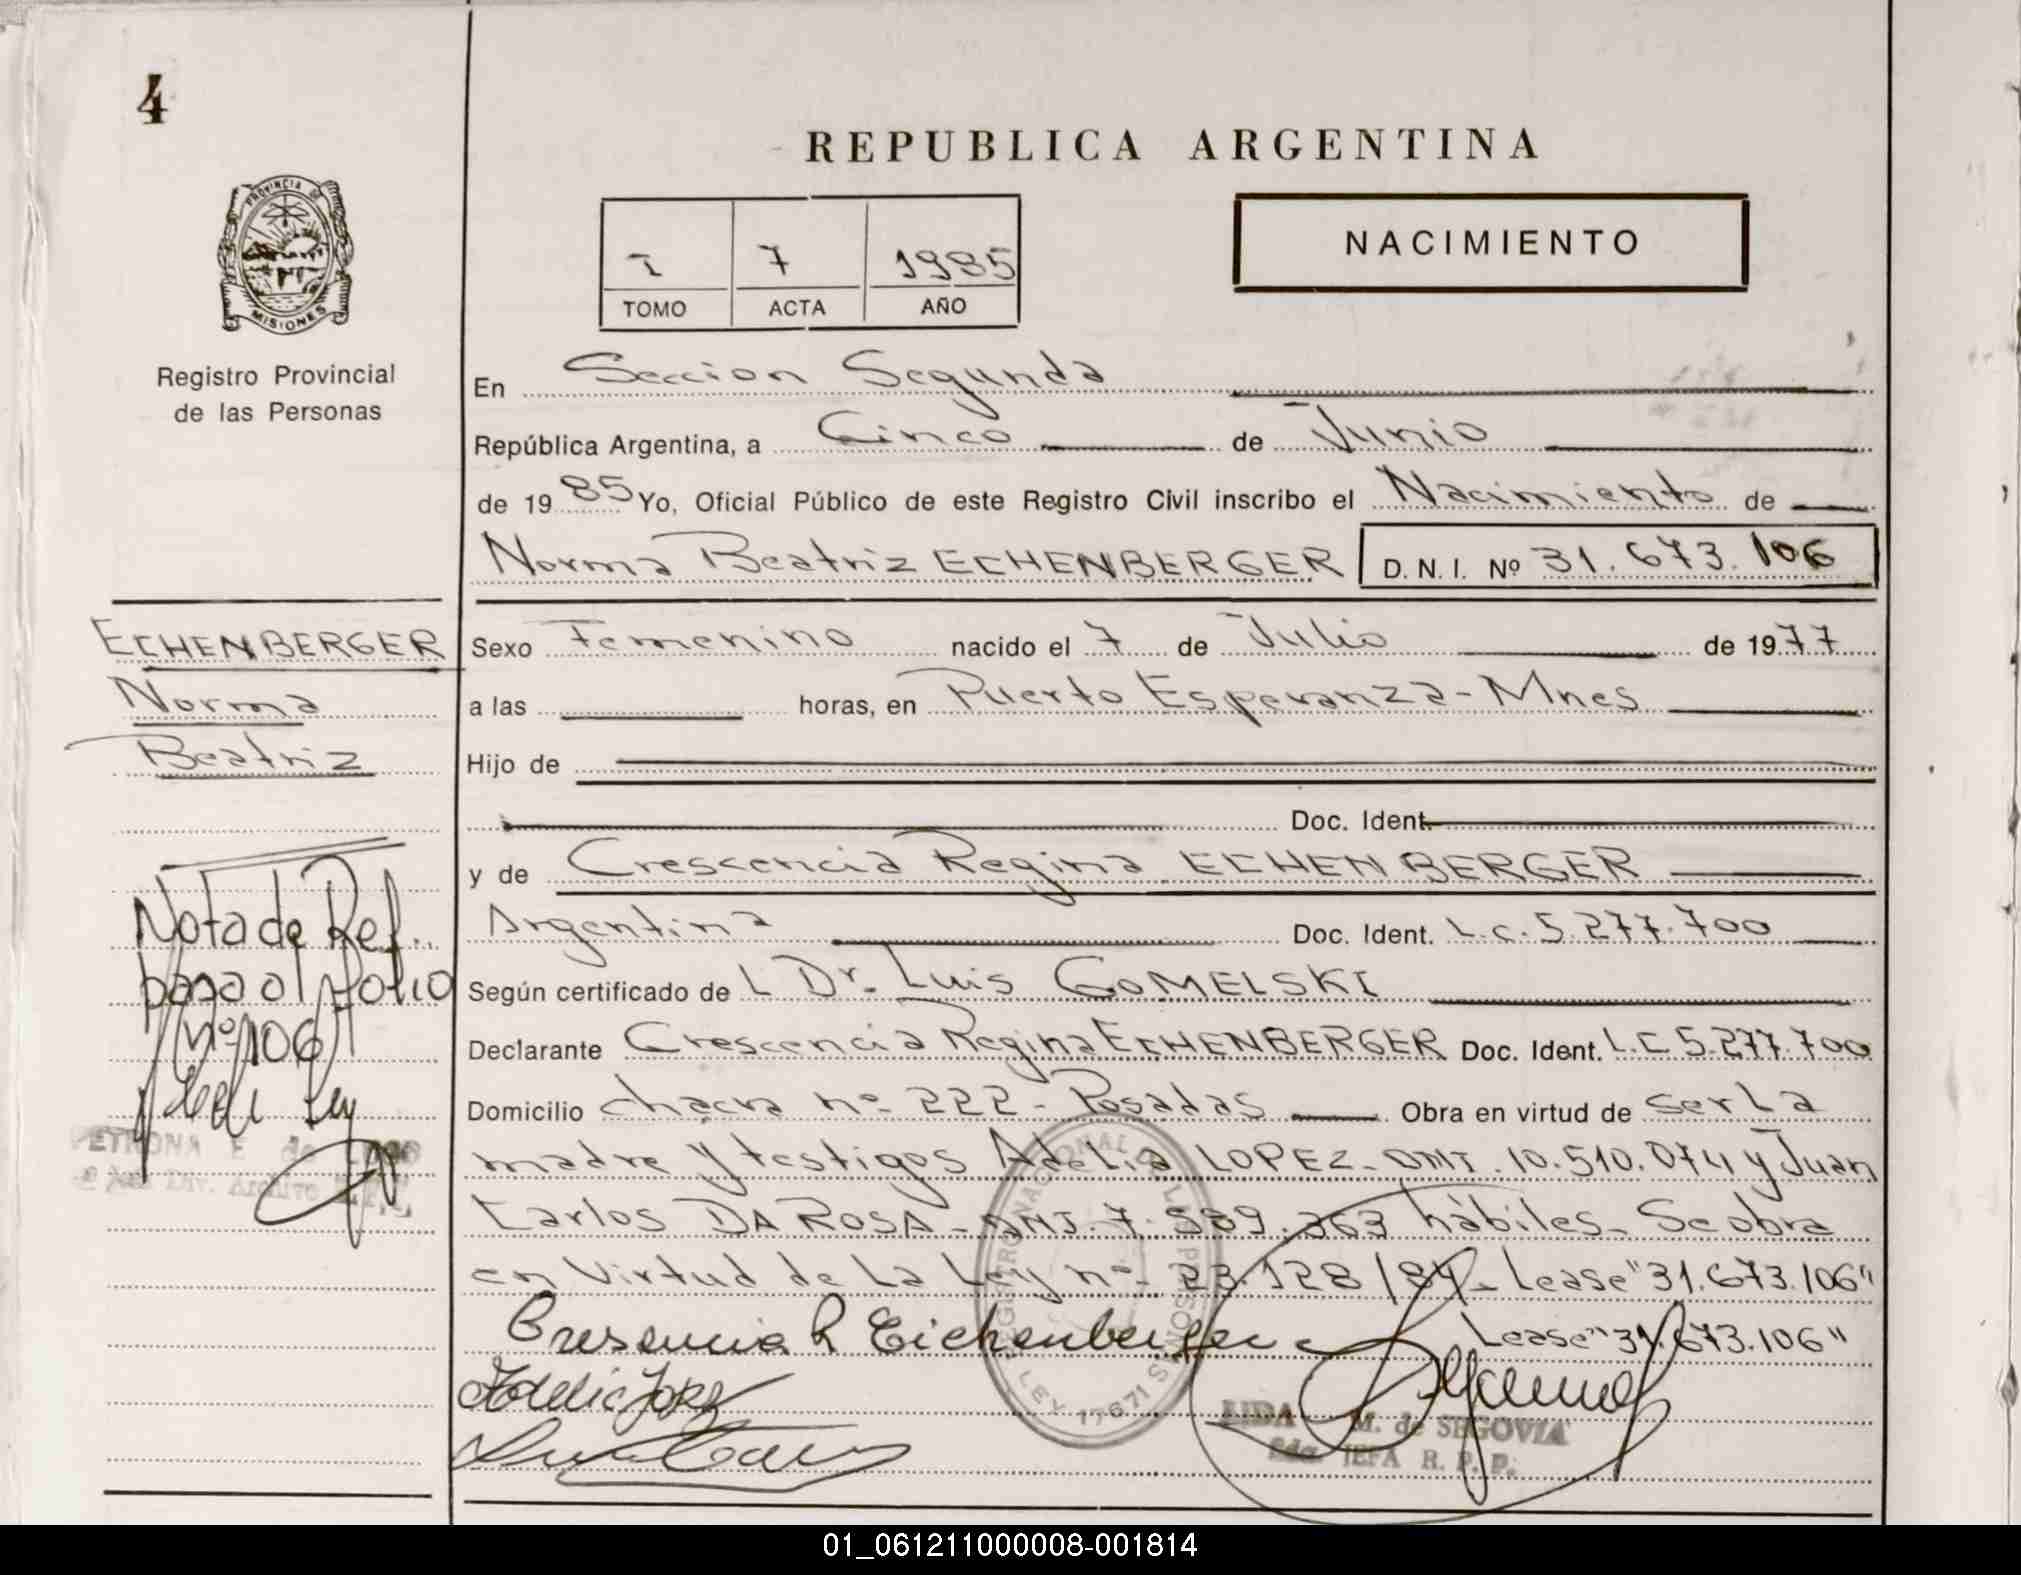 4
REPUBLICA ARGENTINA
PROVINCIA DE
MISIONES
Registro Provincial
de las Personas
I 7 1985
TOMO ACTA AÑO
NACIMIENTO
En Seccion Segunda
República Argentina, a Cinco de Junio
de 1985 Yo, Oficial Público de este Registro Civil inscribo el Nacimiento de
Norma Beatriz ECHENBERGER D.N.I. Nº 31.673.106
ECHENBERGER
Norma
Beatriz
Sexo Femenino nacido el 7 de Julio de 1977
a las horas, en Puerto Esperanza - Mnes
Hijo de
Doc. Ident.
y de Crescencia Regina ECHENBERGER
Argentina Doc. Ident. L.C. 5.277.700
Según certificado de L Dr. Luis GOMELSKI
Declarante Crescencia Regina ECHENBERGER Doc. Ident. L.C 5.277.700
Domicilio chacra nº 222 - Posadas Obra en virtud de ser La
madre y testigos Adelia LOPEZ - DNI. 10.510.074 y Juan
Carlos DA ROSA - DNI. 7.589.363 hábiles - Se obra
en Virtud de La Ley nº 23.128/84 - Lease "31.673.106"
Lease "31.673.106"
Nota de Ref.
pasa al folio
Nº 106
PETRONA E de
Div. Archivo
Cresencia R Eichenberger
Adelia Lopez
REGISTRO NACIONAL DE LAS PERSONAS
LEY 17671
LIDA M. de SEGOVIA
2da JEFA R. P. P.
01_061211000008-001814